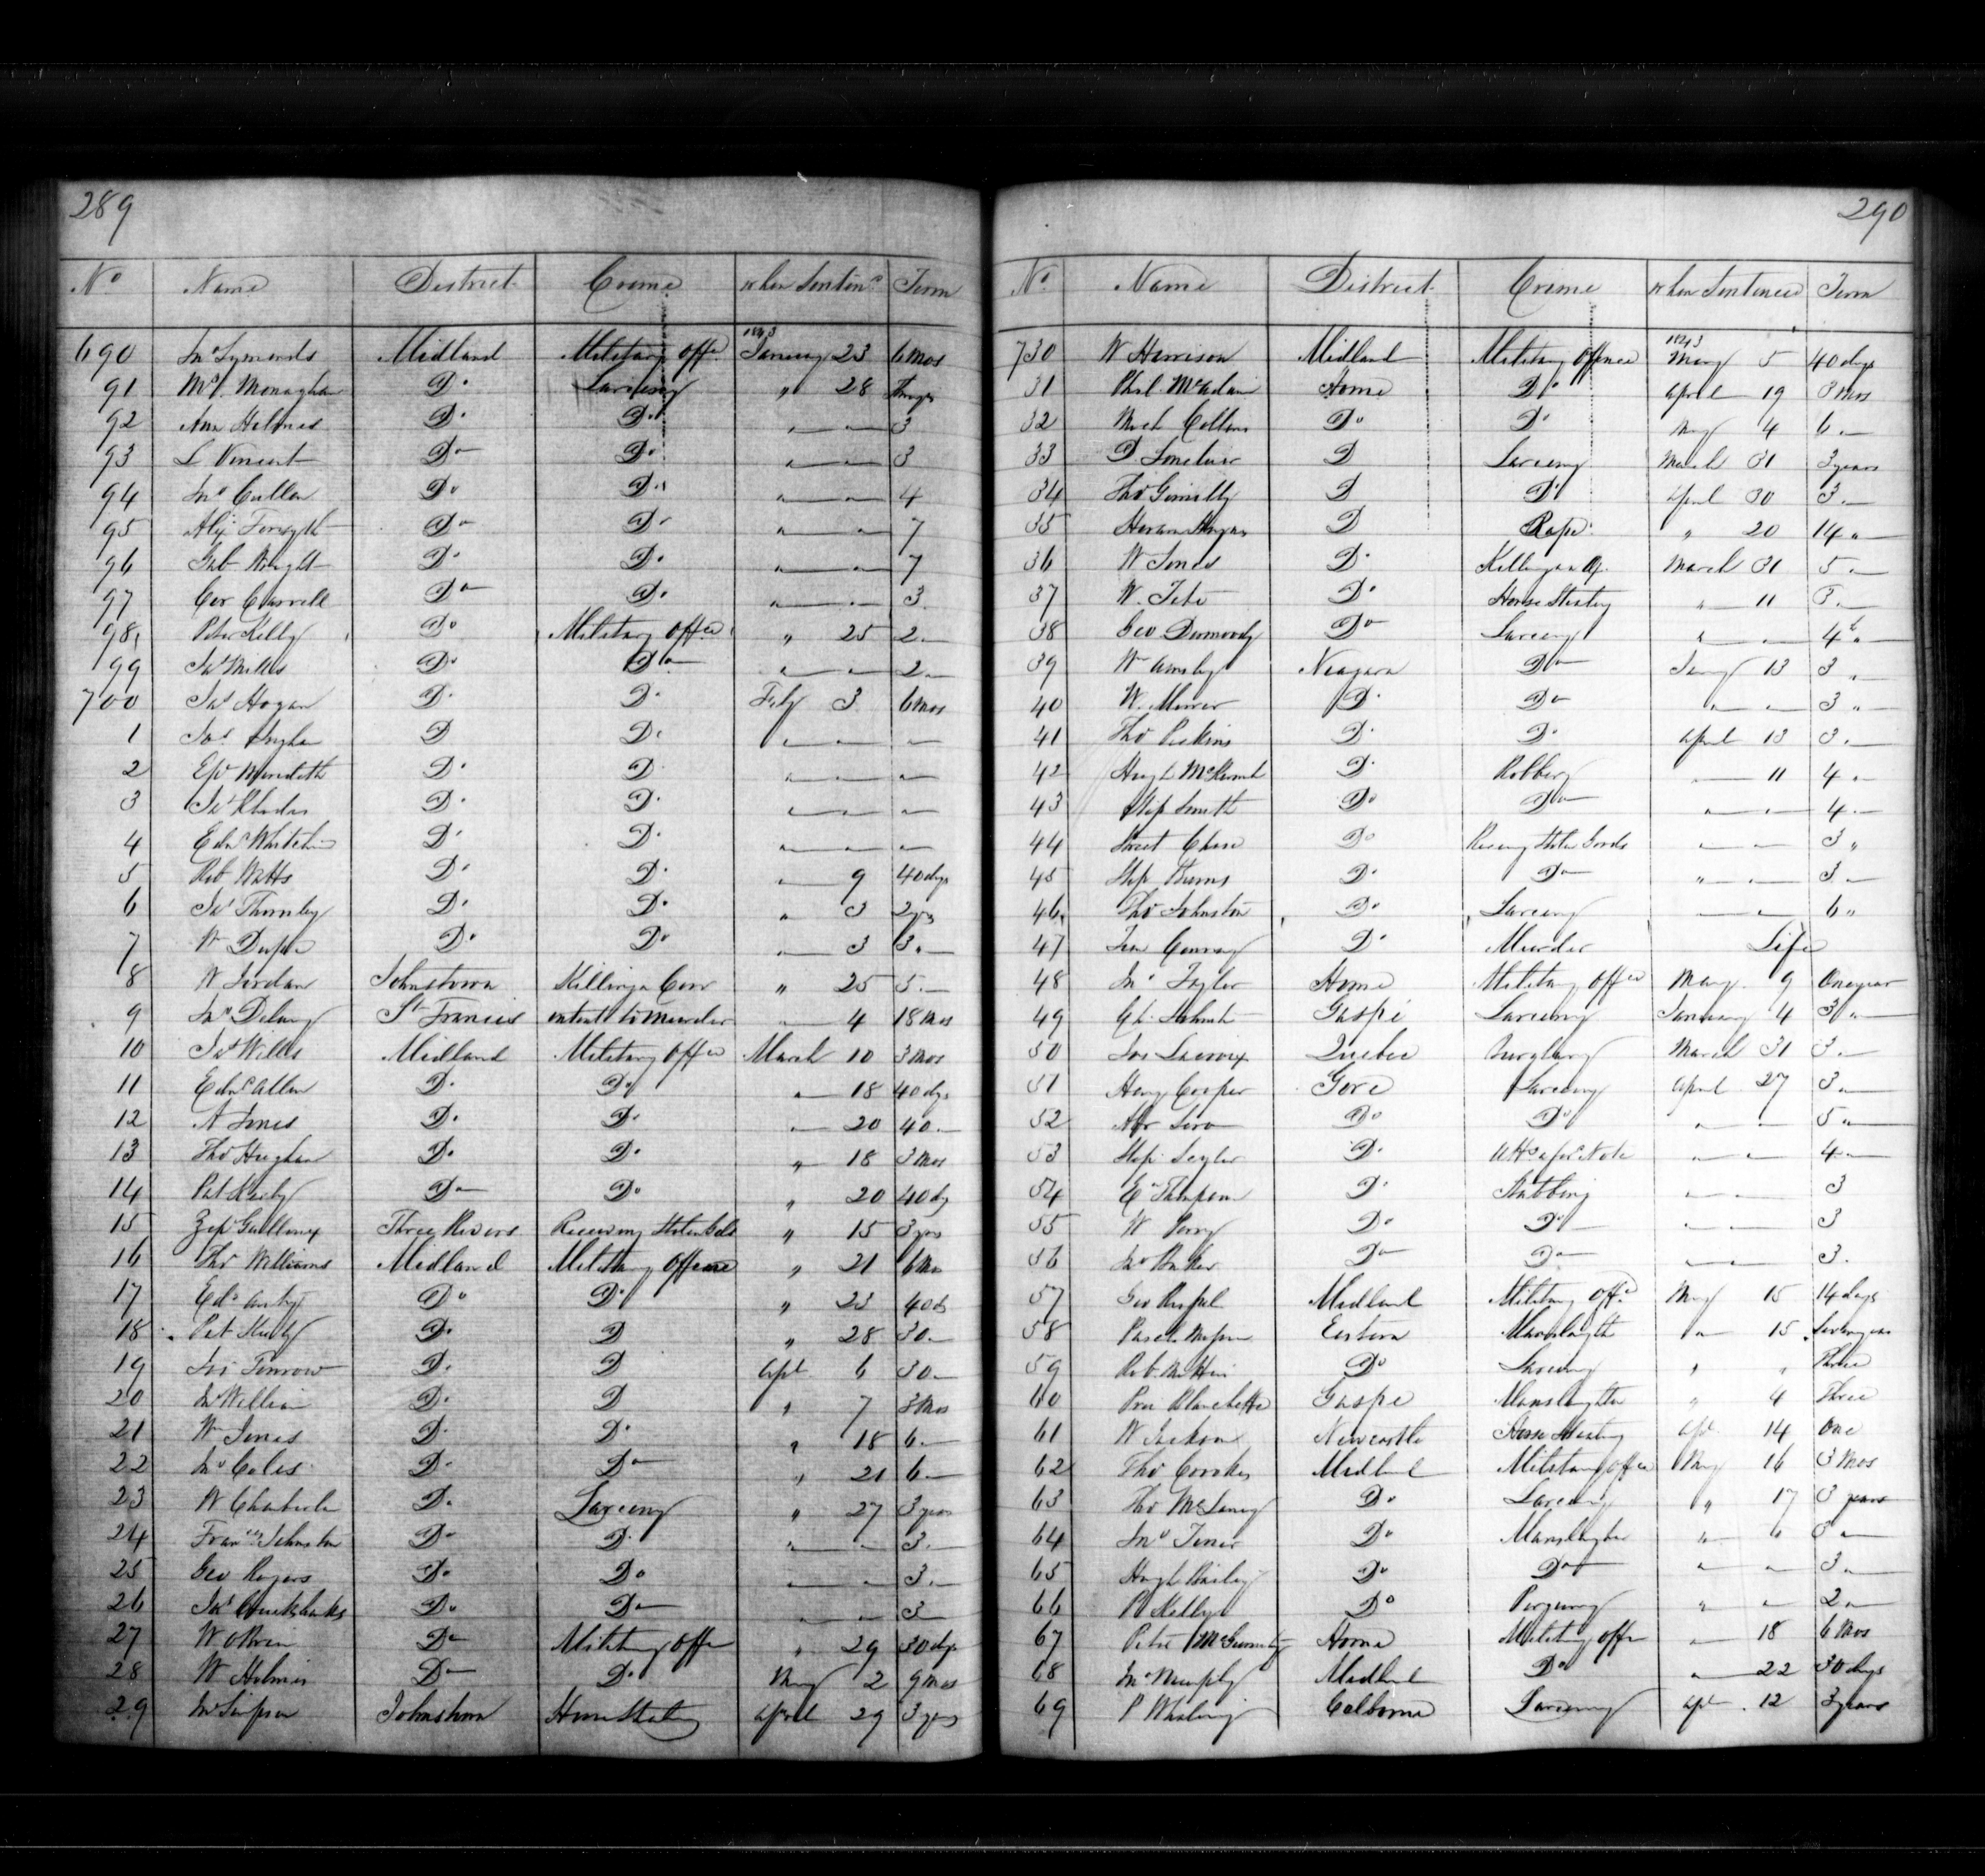 289
No Name District Crime when Sentenc'd Term
690 Jno Symonds Midland Military Offe 1843 January 23 6 Mos
91 Monaghan Do Larceny " 28
92 Ann Holmes Do Do " — " — 3
93 L Vincent Do Do " — " — 3
94 Jno Cullen Do Do " — " — 4
95 Alex Forsyth Do Do " — " — 7
96 Gab Wright Do Do " — " — 7
97 Carroll Do Do " — " — 3
98 Peter Kelly Do Military offce " 25 2 "
99 Jas Mills Do Do " — " — 2 "
700 Jas Hogan Do Do Feby 3 6 Mos
1 Jas D Do " — " — " —
2 Meredith Do D " — " — " —
3 Jas Rhodes Do Do " — " — " —
4 Edwd Do Do " — " — " —
5 Rob Watts Do Do " 9 40 dys
6 Jas Thornley Do Do " 3 2 yrs
7 Wm Do Do " 3 3 "
8 W Jordan Johnstown Killing a Cow " 25 3 "
9 Jno Delany St Francis intent to Murder " 4 18 Mos
10 Jas Wills Midland Military offce March 10 3 Mos
11 Edwd Allen Do Do " 18 40 dys
12 A Jones Do Do " 20 40 "
13 Thos Hughes Do Do " 18 3 Mos
14 Pat Do Do " 20 40 dy
15 Three Rivers Receiving Stolen Gds " 15 3 yrs
16 Thos Williams Midland Military Offence " 21 6 Mo
17 Edwd Do Do " 23 40 d
18 Pat Do D " 28 30 "
19 Jas Do D Apl 6 30 "
20 Do D " 7 3 Mos
21 Wm Jones Do Do " 18 6 "
22 Jno Coles Do Do " 21 6 "
23 W Do Larceny " 27 3 years
24 Frances Johnston Do Do " — " — 3 "
25 Geo Rogers Do Do " — " — 3 "
26 Jas Cruikshanks Do Do " — " — 3
27 W OBrien Do Military offe " 29 30 dys
28 W Holmes Do Do May 2 9 Mos
29 Jno Simpson Johnstown Horse Stealing April 29 3 yrs
290
No Name District Crime when Sentenced Term
730 W Harrison Midland Military Offence 1843 May 5 40 days
31 Phil McAdam Home Do April 19 3 Mos
32 Mich Collins Do Do May 4 6 "
33 D D Larceny March 31 3 years
34 Thos D Do April 30 3 "
35 D Rape " 20 14 "
36 W Jones Do Killing an March 31 5 "
37 W. Do Horse Stealing " 11 3 "
38 Geo Dermody Do Larceny " — " — 4 "
39 Wm Niagara Do Jany 13 3 "
40 W. Do Do " — " — 3 "
41 Thos Perkins Do Do April 13 3 "
42 Hugh Do Robbery " 11 4 "
43 Step Smith Do Do " — " — 4 "
44 Chase Do Receiving Stolen Goods " — " — 3 "
45 Step Burns Do Do " — " — 3 "
46 Thos Johnston Do Larceny " — " — 6 "
47 Do Murder Life
48 Jno Taylor Home Military offce May 9 One year
49 Gaspé Larceny January 4 3 "
50 Jos Lacroix Quebec burglary March 31 3 "
51 Heny Cooper Gore Larceny April 27 3 "
52 Do Do " — " — 5 "
53 Step Do Note " — " — 4 "
54 Thompson Do Stabbing " — " — 3
55 W Perry Do Do " — " — 3
56 Do Do " — " — 3
57 Geo Midland Military offe May 15 14 days
58 Eastern Manslaughtr " 15 years
59 Rob Do Larceny " " Three
60 Blanchette Gaspe Manslaughter " 4 Three
61 W Jackson Newcastle Horse Stealing Apl 14 One
62 Thos Crookes Midland Military offce May 16 3 Mos
63 Thos Do Larceny " 17 3 years
64 Jno Do Manslaughter " 3 "
65 Hugh Bailey Do Do " — " — 3 "
66 P Kelly Do Perjury " — 2 "
67 Peter Home Military offe " 18 6 Mos
68 Jno Murphy Midland Do " 22 30 days
69 P Whaling Colborne Larceny Apl 12 3 years